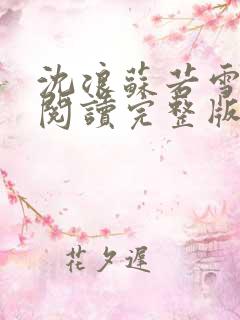 沈浪蘇若雪
閱讀完整版
花夕遲